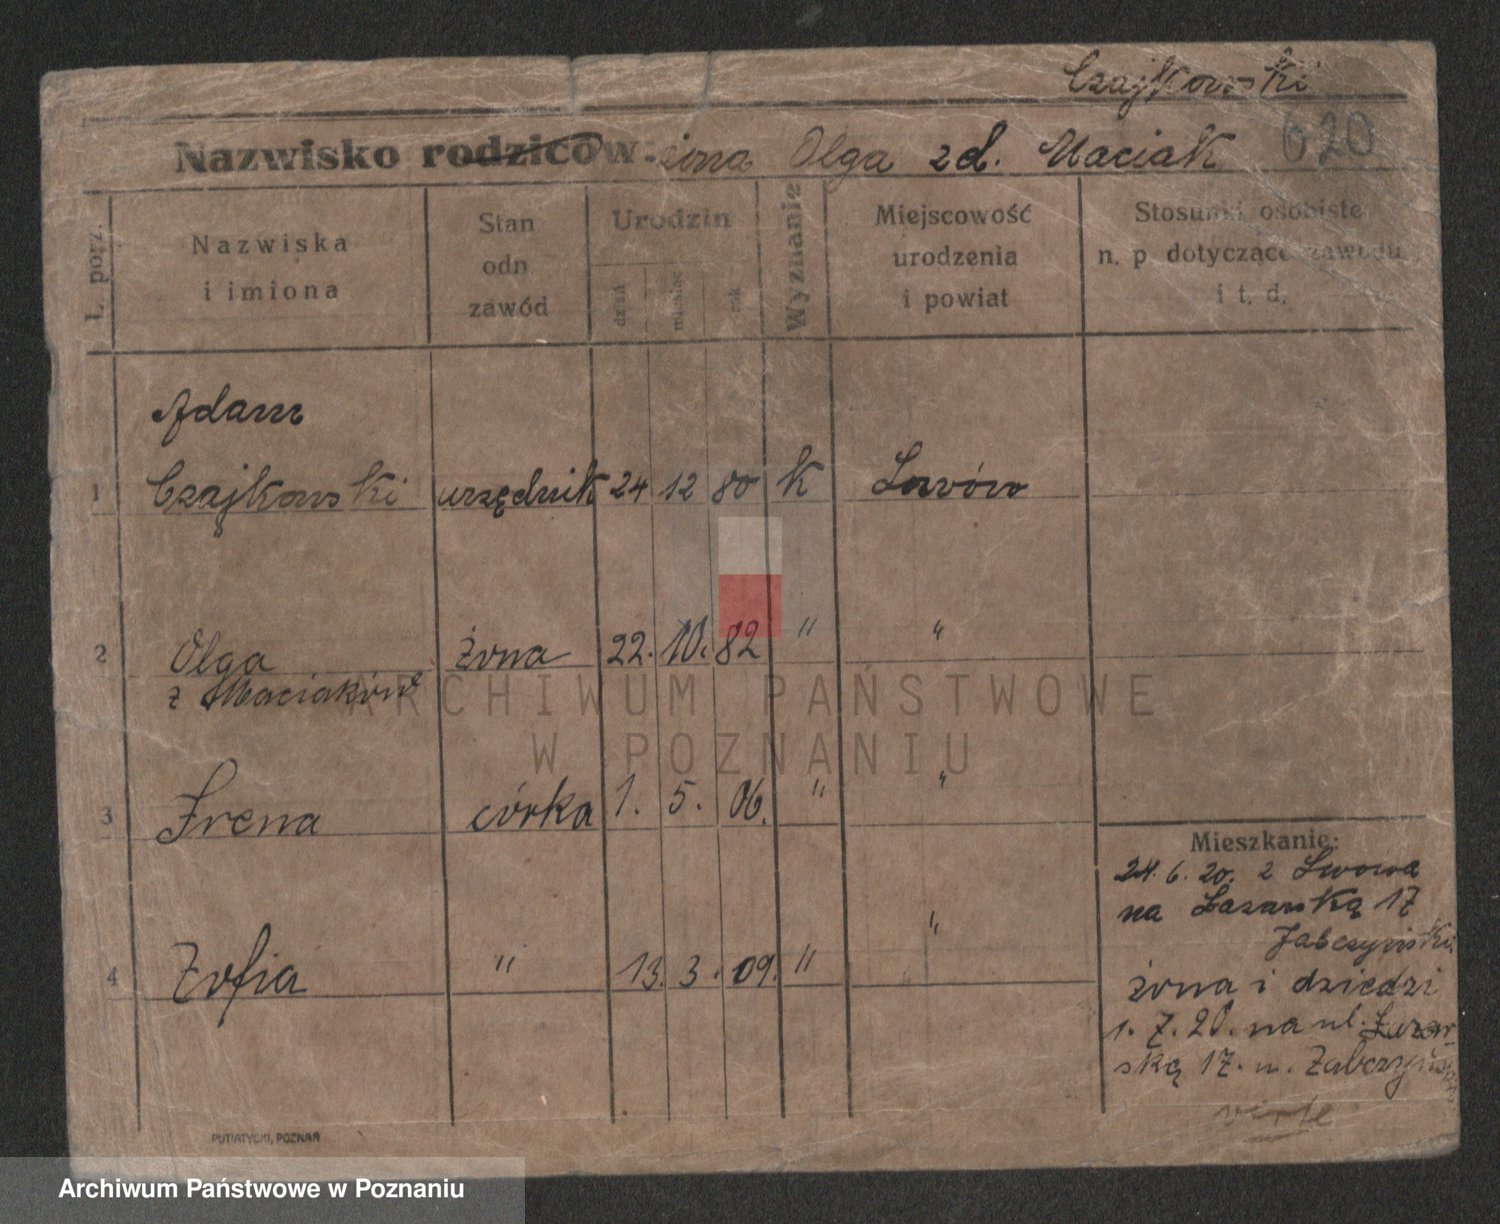 Czajkowski
Nazwisko rodziców: żona Olga zd. Maciak 620
L. porz.
Nazwiska
i imiona
Stan
odn
zawód
Urodzin
dzień
miesiąc
rok
Wyznanie
Miejscowość
urodzenia
i powiat
Stosunki osobiste
n. p dotyczące zawodu
i t. d.
Adam
1 Czajkowski urzędnik 24 12 80 k Lwów
2 Olga żona 22. 10. 82 " "
z Maciaków
3 Irena córka 1. 5. 06. " "
4 Zofia " 13. 3. 09. " "
Mieszkanie:
24. 6. 20. z Lwowa
na Łazarską 17
Żabczyński
żona i dziedzi
1. 7. 20. na ul. Łazar-
ską 17. u. Żabczyński
verte
PUTIATYCKI, POZNAŃ
ARCHIWUM PAŃSTWOWE
W POZNANIU
Archiwum Państwowe w Poznaniu